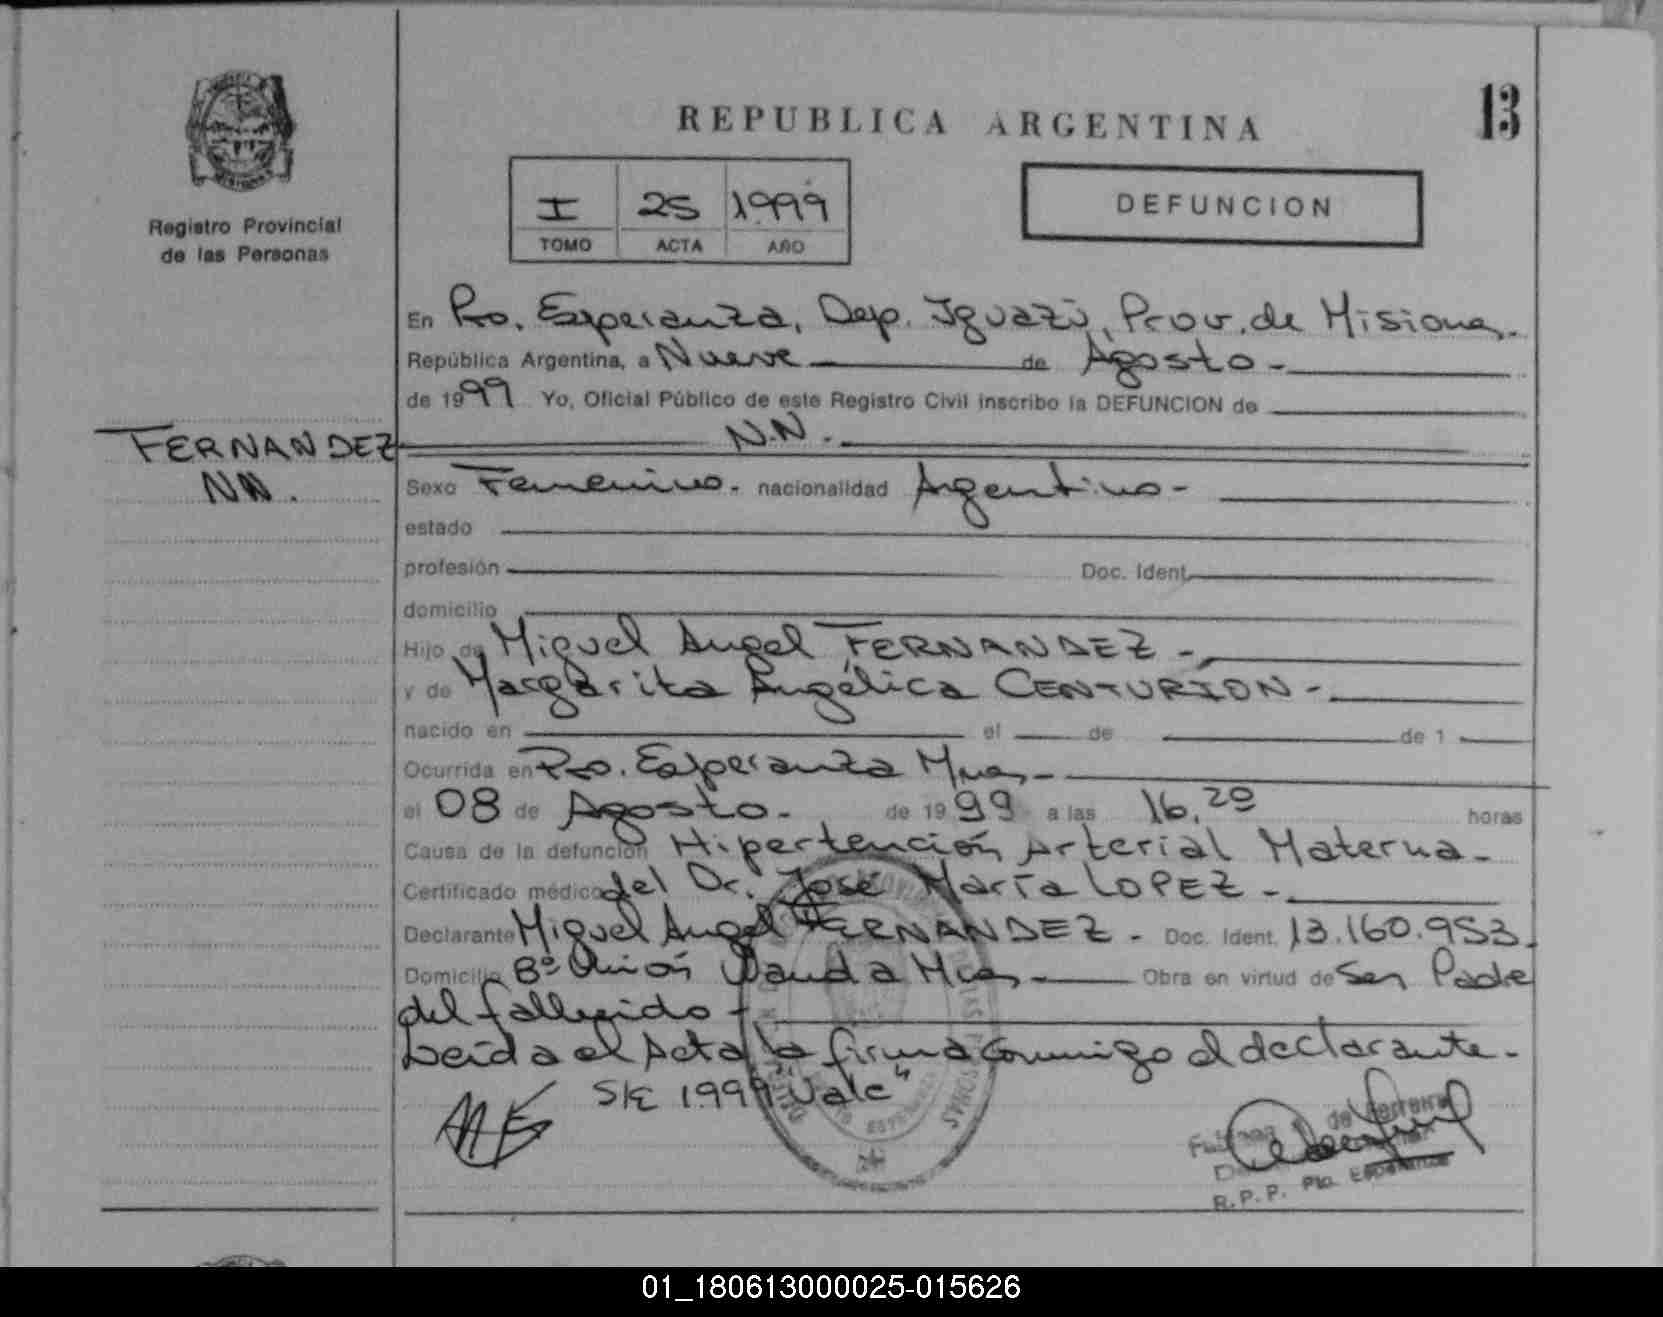 REPUBLICA ARGENTINA
13
Registro Provincial
de las Personas
I 25 1999
TOMO ACTA AÑO
DEFUNCION
En Pto. Esperanza, Dep. Iguazú, Prov. de Misiones.-
República Argentina, a Nueve de Agosto -
de 1999 Yo, Oficial Público de este Registro Civil inscribo la DEFUNCION de
FERNANDEZ
NN.
N.N.-
Sexo Femenino.- nacionalidad Argentino-
estado
profesión Doc. Ident.
domicilio
Hijo de Miguel Angel FERNANDEZ -
y de Margarita Angélica CENTURION -
nacido en el de de 1
Ocurrida en Pto. Esperanza Mnes -
el 08 de Agosto.- de 1999 a las 16,20 horas
Causa de la defunción Hipertención Arterial Materna -
Certificado médico del Dr. José María LOPEZ -
Declarante Miguel Angel FERNANDEZ - Doc. Ident. 13.160.953.
Domicilio Bº Unión Wanda Mnes - Obra en virtud de Ser Padre
del fallecido -
Leída el Acta la firma conmigo el declarante -
S/E 1999 "Vale"
de Ferreira
R.P.P. Pto. Esperanza
01_180613000025-015626